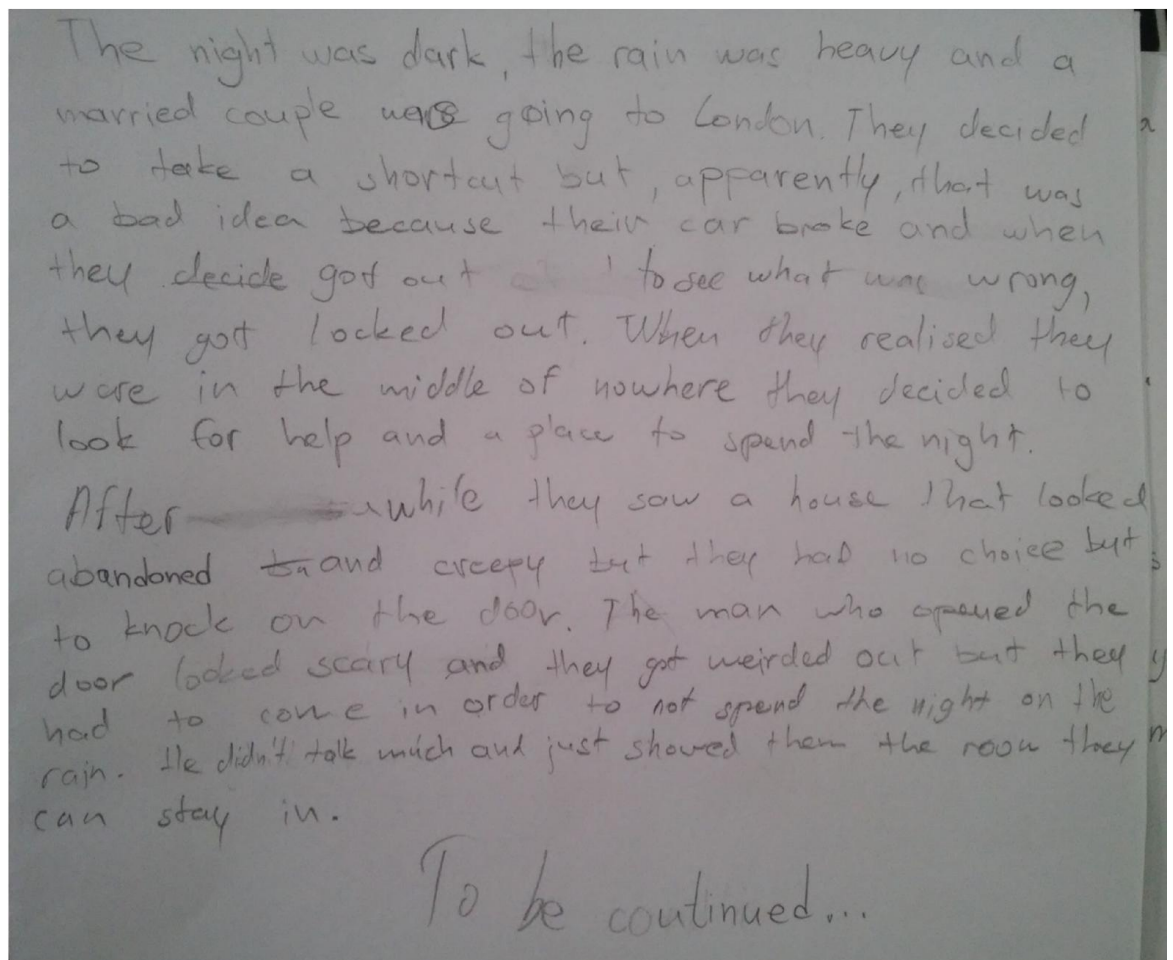 The night was dark, the rain was heavy and a
married couple was going to London. They decided
to take a shortcut but, apparently, that was
a bad idea because their car broke and when
they decide got out to see what was wrong,
they got locked out. When they realised they
were in the middle of nowhere they decided to
look for help and a place to spend the night.
After a while they saw a house that looked
abandoned and creepy but they had no choice but
to knock on the door. The man who opened the
door looked scary and they got weirded out but they
had to come in order to not spend the night on the
rain. He didn't talk much and just showed them the room they
can stay in.
To be continued...